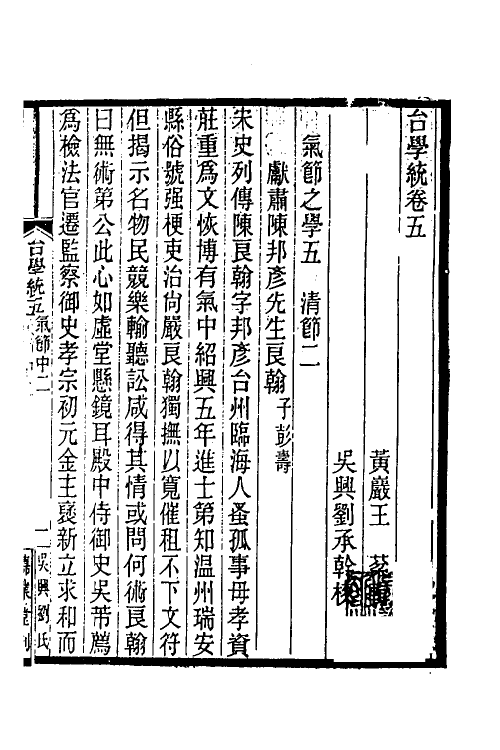 台學統卷五
黃巖王
吳興劉承幹
氣節之學五　清節二
獻肅陳邦彥先生良翰子彭壽
宋史列傳陳良翰字邦彥台州臨海人蚤孤事母孝資
莊重爲文恢博有氣中紹興五年進士第知温州瑞安
縣俗號强梗吏治尙嚴良翰獨撫以寬催租不下文符
但揭示名物民競樂輸聽訟咸得其情或問何術良翰
曰無術第公此心如虛堂懸鏡耳殿中侍御史吳芾薦
爲檢法官遷監察御史孝宗初元金主褎新立求和而
台學統五氣節中二
一
吳興劉氏